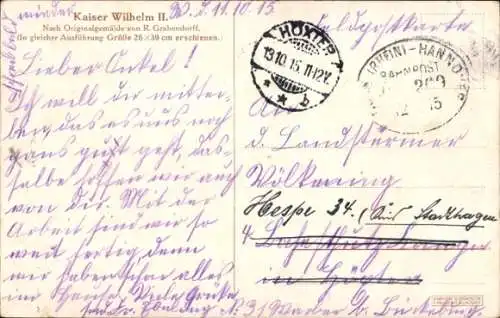 Kaiser Wilhelm II.
Nach Originalgemälde von R. Grabendorff.
(In gleicher Ausführung Größe 26×39 cm erschienen.)
d. 11.10.15
Feldpostkarte
HÖXTER
13.10.15.11-12V.
* * b
(RHEIN)-HANNOVER
BAHNPOST
ZUG 269
12 15
Lieber Onkel!
Ich will dir mitter-
das es uns noch
ganz gut geht, das-
selbe hoffen wir auch
von Dir. Mit der
Arbeit sind wir so
weit fertig denn
wir haben schon alles
im Hause. Viele Grüße
An
d. Landstürmer
Völkening
Hespe 34. (Kreis Stadthagen
4
in Höxter
N. 31 b. Bückeburg